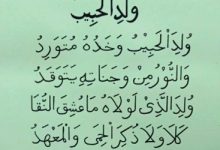 وُلِدَ الْحَبِيْبُ
وُلِدَ الْحَبِيْبُ وَخَدُّهُ مُتَوَرِّدُ
وَالنُّوْرُ مِنْ وَجَنَاتِهِ يَتَوَقَّدُ
وُلِدَ الَّذِيْ لَوْلَاهُ مَا عُشِقَ النَّقَا
كَلَّا وَلَا ذُكِرَ الْحِمَى وَالْمَعْهَدُ